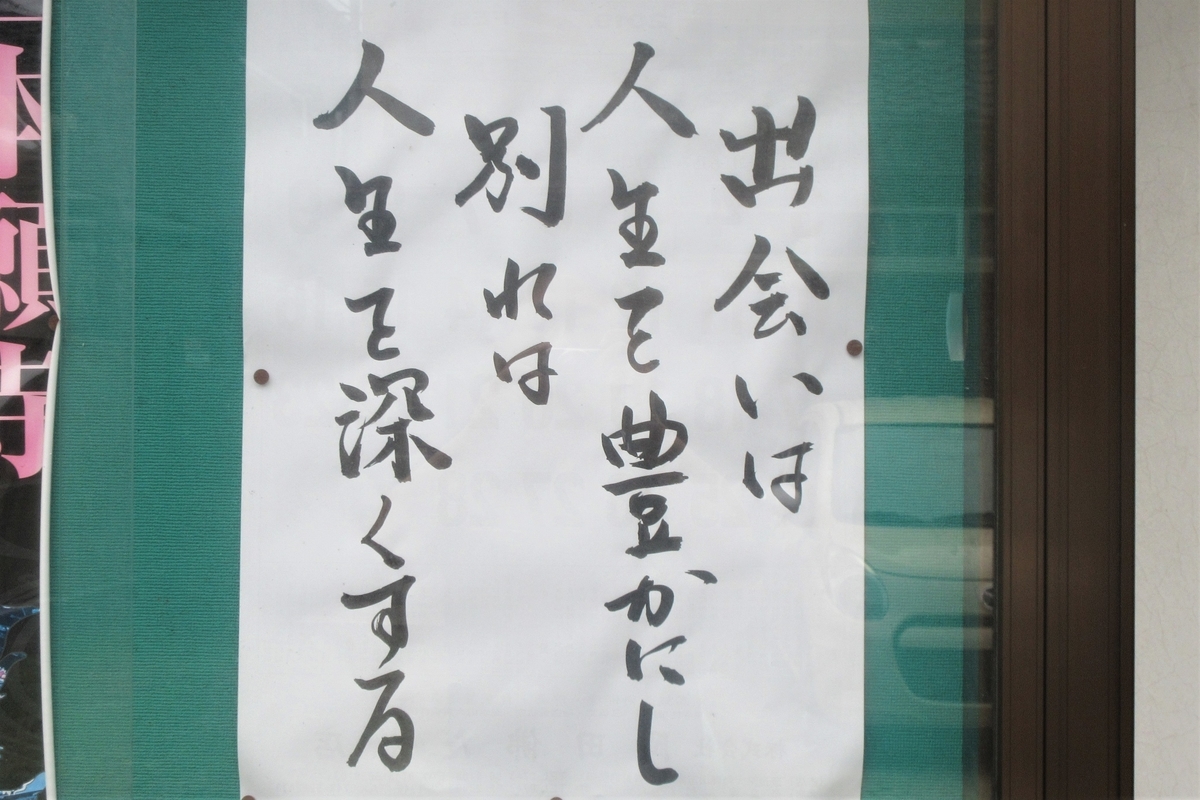 出会いは
人生を豊かにし
別れは
人生を深くする